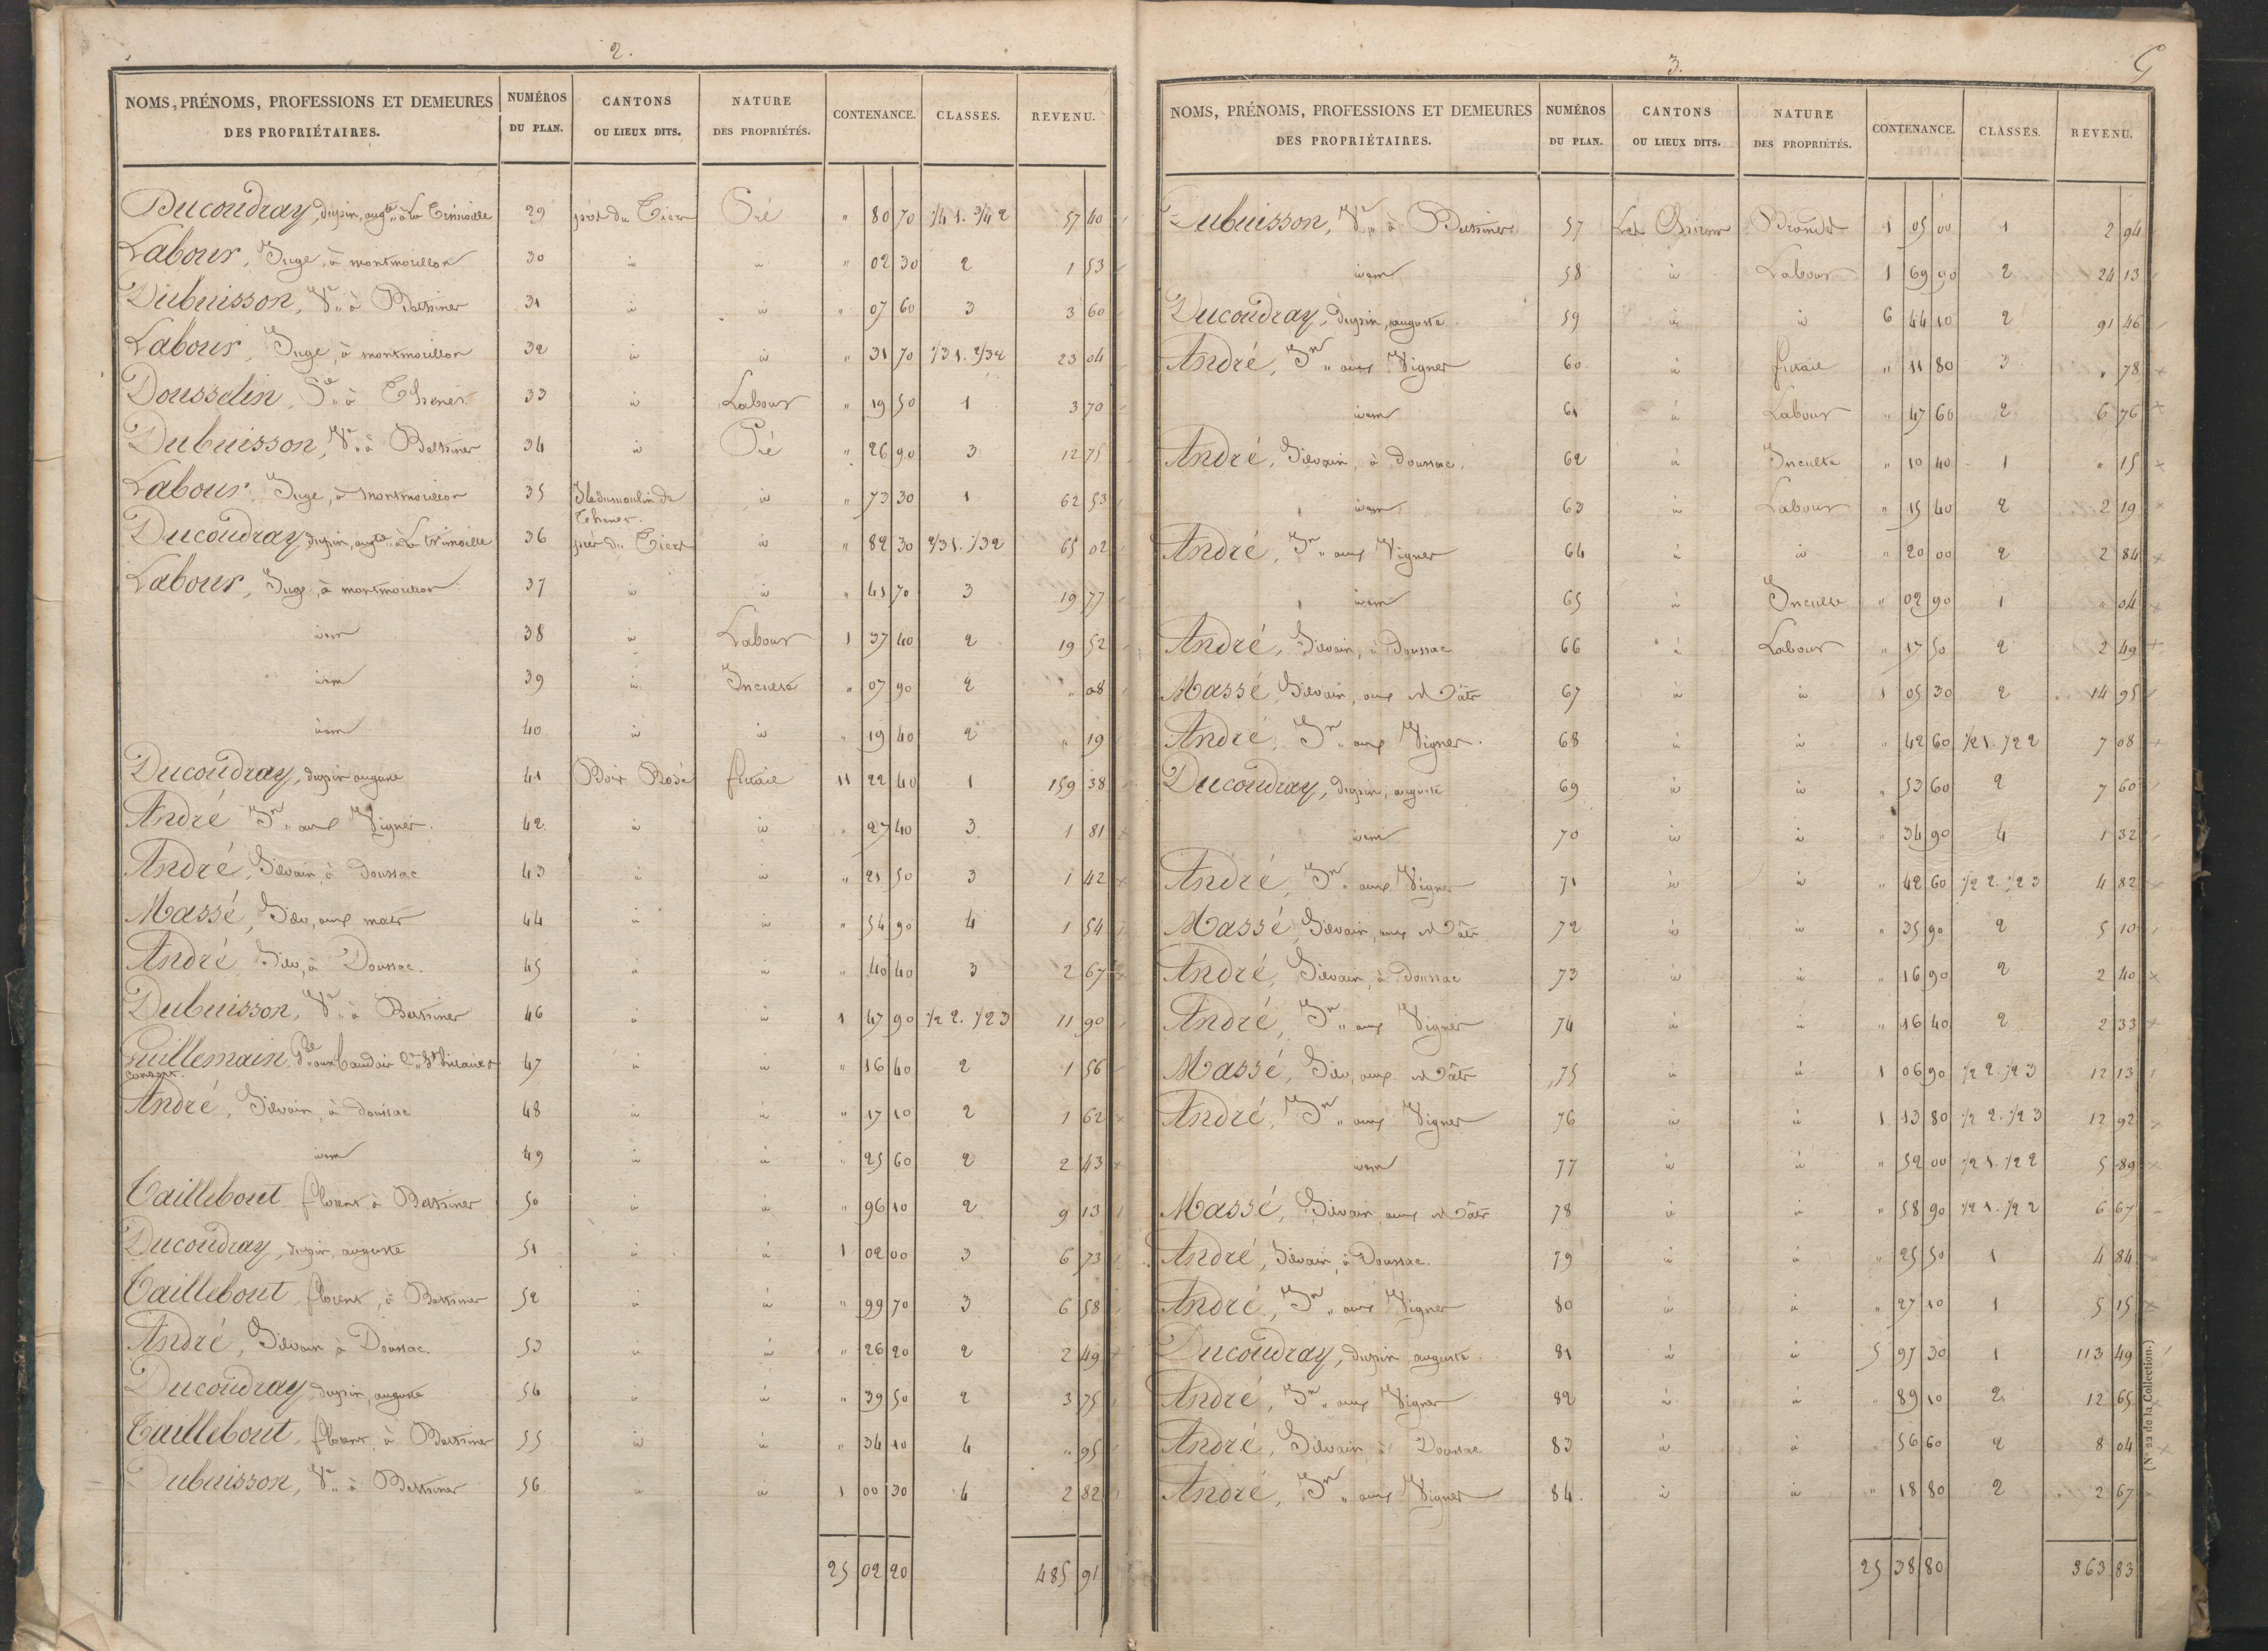 2.
NOMS, PRÉNOMS, PROFESSIONS ET DEMEURES DES PROPRIÉTAIRES. NUMÉROS DU PLAN. CANTONS OU LIEUX DITS. NATURE DES PROPRIÉTÉS. CONTENANCE. CLASSES. REVENU.
Ducoudray, dupin, augte à La Trimoille 29 prés du Tiers Pré " 80 70 1/4 1. 3/4 2 57 40
Labour, Juge, à montmorillon 30 id id " 02 30 2 1 53
Dubuisson, Ve à 31 id id " 07 60 3 3 60
Labour, Juge, à montmorillon 32 id id " 31 70 1/3 1. 2/3 2 23 04
Dousselin, à Thenet 33 id Labour " 19 50 1 3 70
Dubuisson, Ve à 34 id Pré " 26 90 3 12 75
Labour, Juge, à montmorillon 35 Iledumoulin de Thenet. id " 73 30 1 62 53
Ducoudray, dupin, augte à La trimoille 36 prés du Tiers id " 82 30 2/3 1. 1/3 2 65 02
Labour, Juge, à montmorillon 37 id id " 41 70 3 19 77
idem 38 id Labour 1 37 40 2 19 52
idem 39 id Inculte " 07 90 2 " 08
idem 40 id id " 19 40 2 " 19
Ducoudray, dupin auguste 41 Bois Rosé futaie 11 22 40 1 159 38
André Jn aux Vigner. 42 id id " 27 40 3. 1 81
André, Silvain, à Doussac 43 id id " 21 50 3 1 42
Massé, Silv, aux mats 44 id id " 54 90 4 1 54
André Silv, à Doussac. 45 id id " 40 40 3 2 67
Dubuisson, Ve à 46 id id 1 47 90 1/2 2. 1/2 3 11 90
Guillemain, aux St hilaire consort. 47 id id " 16 40 2 1 56
André, Silvain, à doussac 48 id id " 17 10 2 1 62
idem 49 id id " 25 60 2 2 43
Taillebout florent, à 50 id id " 96 10 2 9 13
Ducoudray, dupin, auguste 51 id id 1 02 00 3 6 73
Taillebout, florent, à 52 id id " 99 70 3 6 58
André, Silvain à Doussac. 53 id id " 26 20 2 2 49
Ducoudray, dupin, auguste 54 id id " 39 50 2 3 75
Taillebout, florent, à 55 id id " 34 10 4 " 95
Dubuisson, Ve à 56 id id 1 00 30 4 2 82
25 02 20 485 91
3.
NOMS, PRÉNOMS, PROFESSIONS ET DEMEURES DES PROPRIÉTAIRES. NUMÉROS DU PLAN. CANTONS OU LIEUX DITS. NATURE DES PROPRIÉTÉS. CONTENANCE. CLASSES. REVENU.
Dubuisson, Ve à 57 Les Brandes 1 05 00 1 2 94
idem 58 id Labour 1 69 90 2 24 13
Ducoudray, dupin, auguste. 59 id id 6 44 10 2 91 46
André, Jn aux Vigner 60 id futaie " 11 80 3 " 78
idem 61 id Labour " 47 60 2 6 76
André, Silvain, à doussac. 62 id Inculte " 10 40 1 " 15
idem 63 id Labour " 15 40 2 2 19
André, Jn aux Vigner 64 id id " 20 00 2 2 84
idem 65 id Inculte " 02 90 1 " 04
André, Silvain, à Doussac 66 id Labour " 17 50 2 2 49
Massé, Silvain, aux Mâts 67 id id 1 05 30 2 14 95
André, Jn aux Vigner. 68 id id " 42 60 1/2 1. 1/2 2 7 08
Ducoudray, dupin, auguste 69 id id " 53 60 2 7 60
idem 70 id id " 34 90 4 1 32
André, Jn aux Vigner 71 id id " 42 60 1/2 2. 1/2 3 4 82
Massé, Silvain, aux Mâts 72 id id " 35 90 2 5 10
André, Silvain, à Doussac 73 id id " 16 90 2 2 40
André, Jn aux Vigner 74 id id " 16 40 2 2 33
Massé, Silv, aux Mâts 75 id id 1 06 90 1/2 2. 1/2 3 12 13
André, Jn aux Vigner 76 id id 1 13 80 1/2 2. 1/2 3 12 92
idem 77 id id " 52 00 1/2 1. 1/2 2 5 89
Massé, Silvain, aux Mâts 78 id id " 58 90 1/2 1. 1/2 2 6 67
André, Silvain, à Doussac. 79 id id " 25 50 1 4 84
André, Jn aux Vigner 80 id id " 27 10 1 5 15
Ducoudray, dupin auguste 81 id id 5 97 30 1 113 49
André, Jn aux Vigner 82 id id " 89 10 2 12 65
André, Silvain à Doussac 83 id id " 56 60 2 8 04
André, Jn aux Vigner 84. id id " 18 80 2 2 67
25 38 80 363 83
(No 22 de la Collection.)